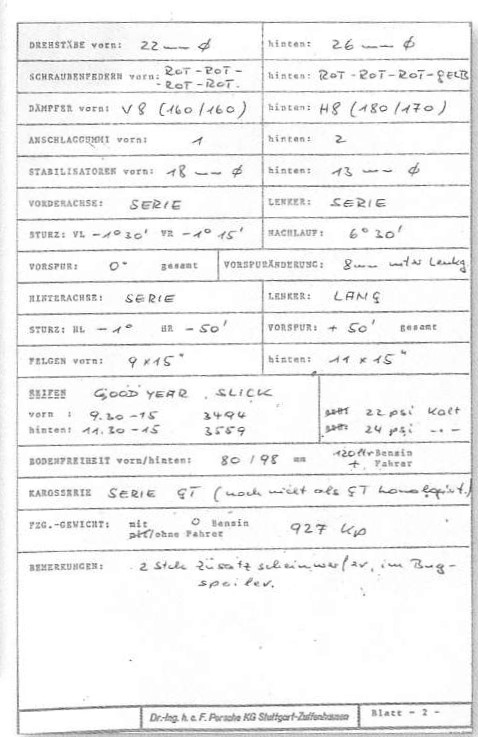 DREHSTÄBE vorn: 22 mm ø hinten: 26 mm ø
SCHRAUBENFEDERN vorn: ROT-ROT- hinten: ROT-ROT-ROT-GELB
-ROT-ROT.
DÄMPFER vorn: V8 (160/160) hinten: H8 (180/170)
ANSCHLAGGUMMI vorn: 1 hinten: 2
STABILISATOREN vorn: 18 mm ø hinten: 13 mm ø
VORDERACHSE: SERIE LENKER: SERIE
STURZ: VL -1°30' VR -1°15' NACHLAUF: 6°30'
VORSPUR: 0° gesamt VORSPURÄNDERUNG: 8mm unter Lenkg
HINTERACHSE: SERIE LENKER: LANG
STURZ: HL -1° HR -50' VORSPUR: +50' gesamt
FELGEN vorn: 9x15" hinten: 11x15"
REIFEN GOOD YEAR SLICK
vorn : 9.30-15 3494 22 psi Kalt
hinten: 11.30-15 3559 24 psi -"-
BODENFREIHEIT vorn/hinten: 80/98 mm 120 ltr Benzin
+ Fahrer
KAROSSERIE SERIE GT (noch nicht als GT homologiert.)
FZG.-GEWICHT: mit 0 Benzin 927 Kp
mit/ohne Fahrer
BEMERKUNGEN: 2 Stck Zusatzscheinwerfer, im Bug-
spoiler.
Dr.-Ing. h. c. F. Porsche KG Stuttgart-Zuffenhausen Blatt - 2 -